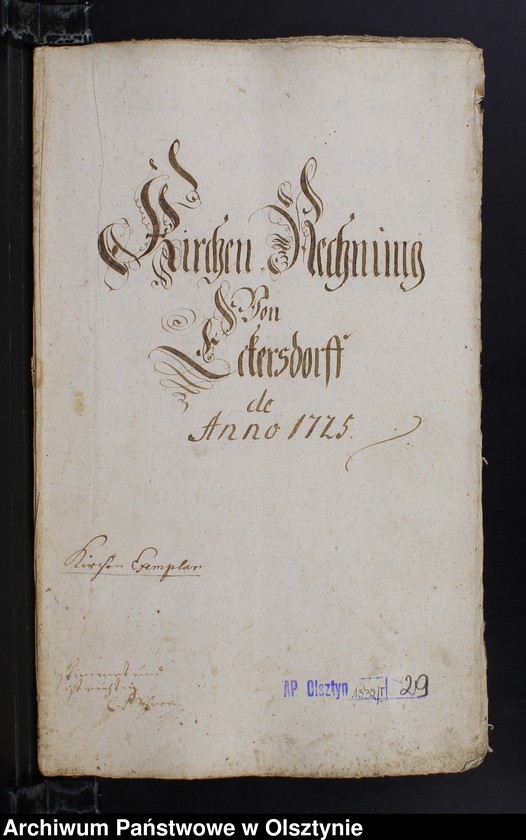 Kirchen Rechnung
Von
Eckersdorff
de
Anno 1725.
Kirchen Exemplar
und
AP Olsztyn 1332/I 29
Archiwum Państwowe w Olsztynie